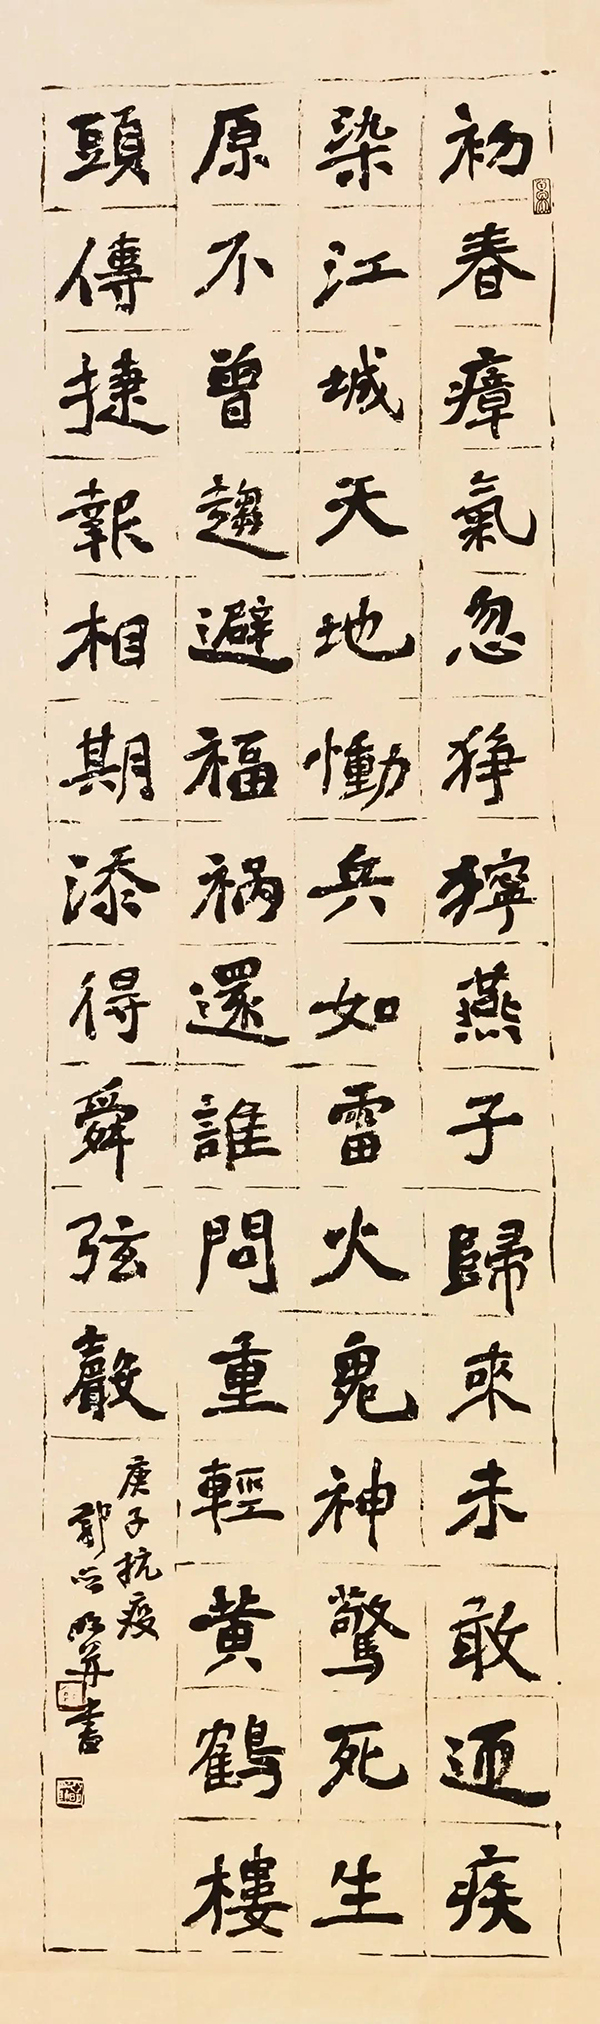 初春瘴氣忽猙獰燕子歸來未敢迎疾
染江城天地慟兵如雷火鬼神驚死生
原不曾趨避福禍還誰問重輕黄鶴樓
頭傳捷報相期添得舜弦聲
庚子抗疫
郭 明并書